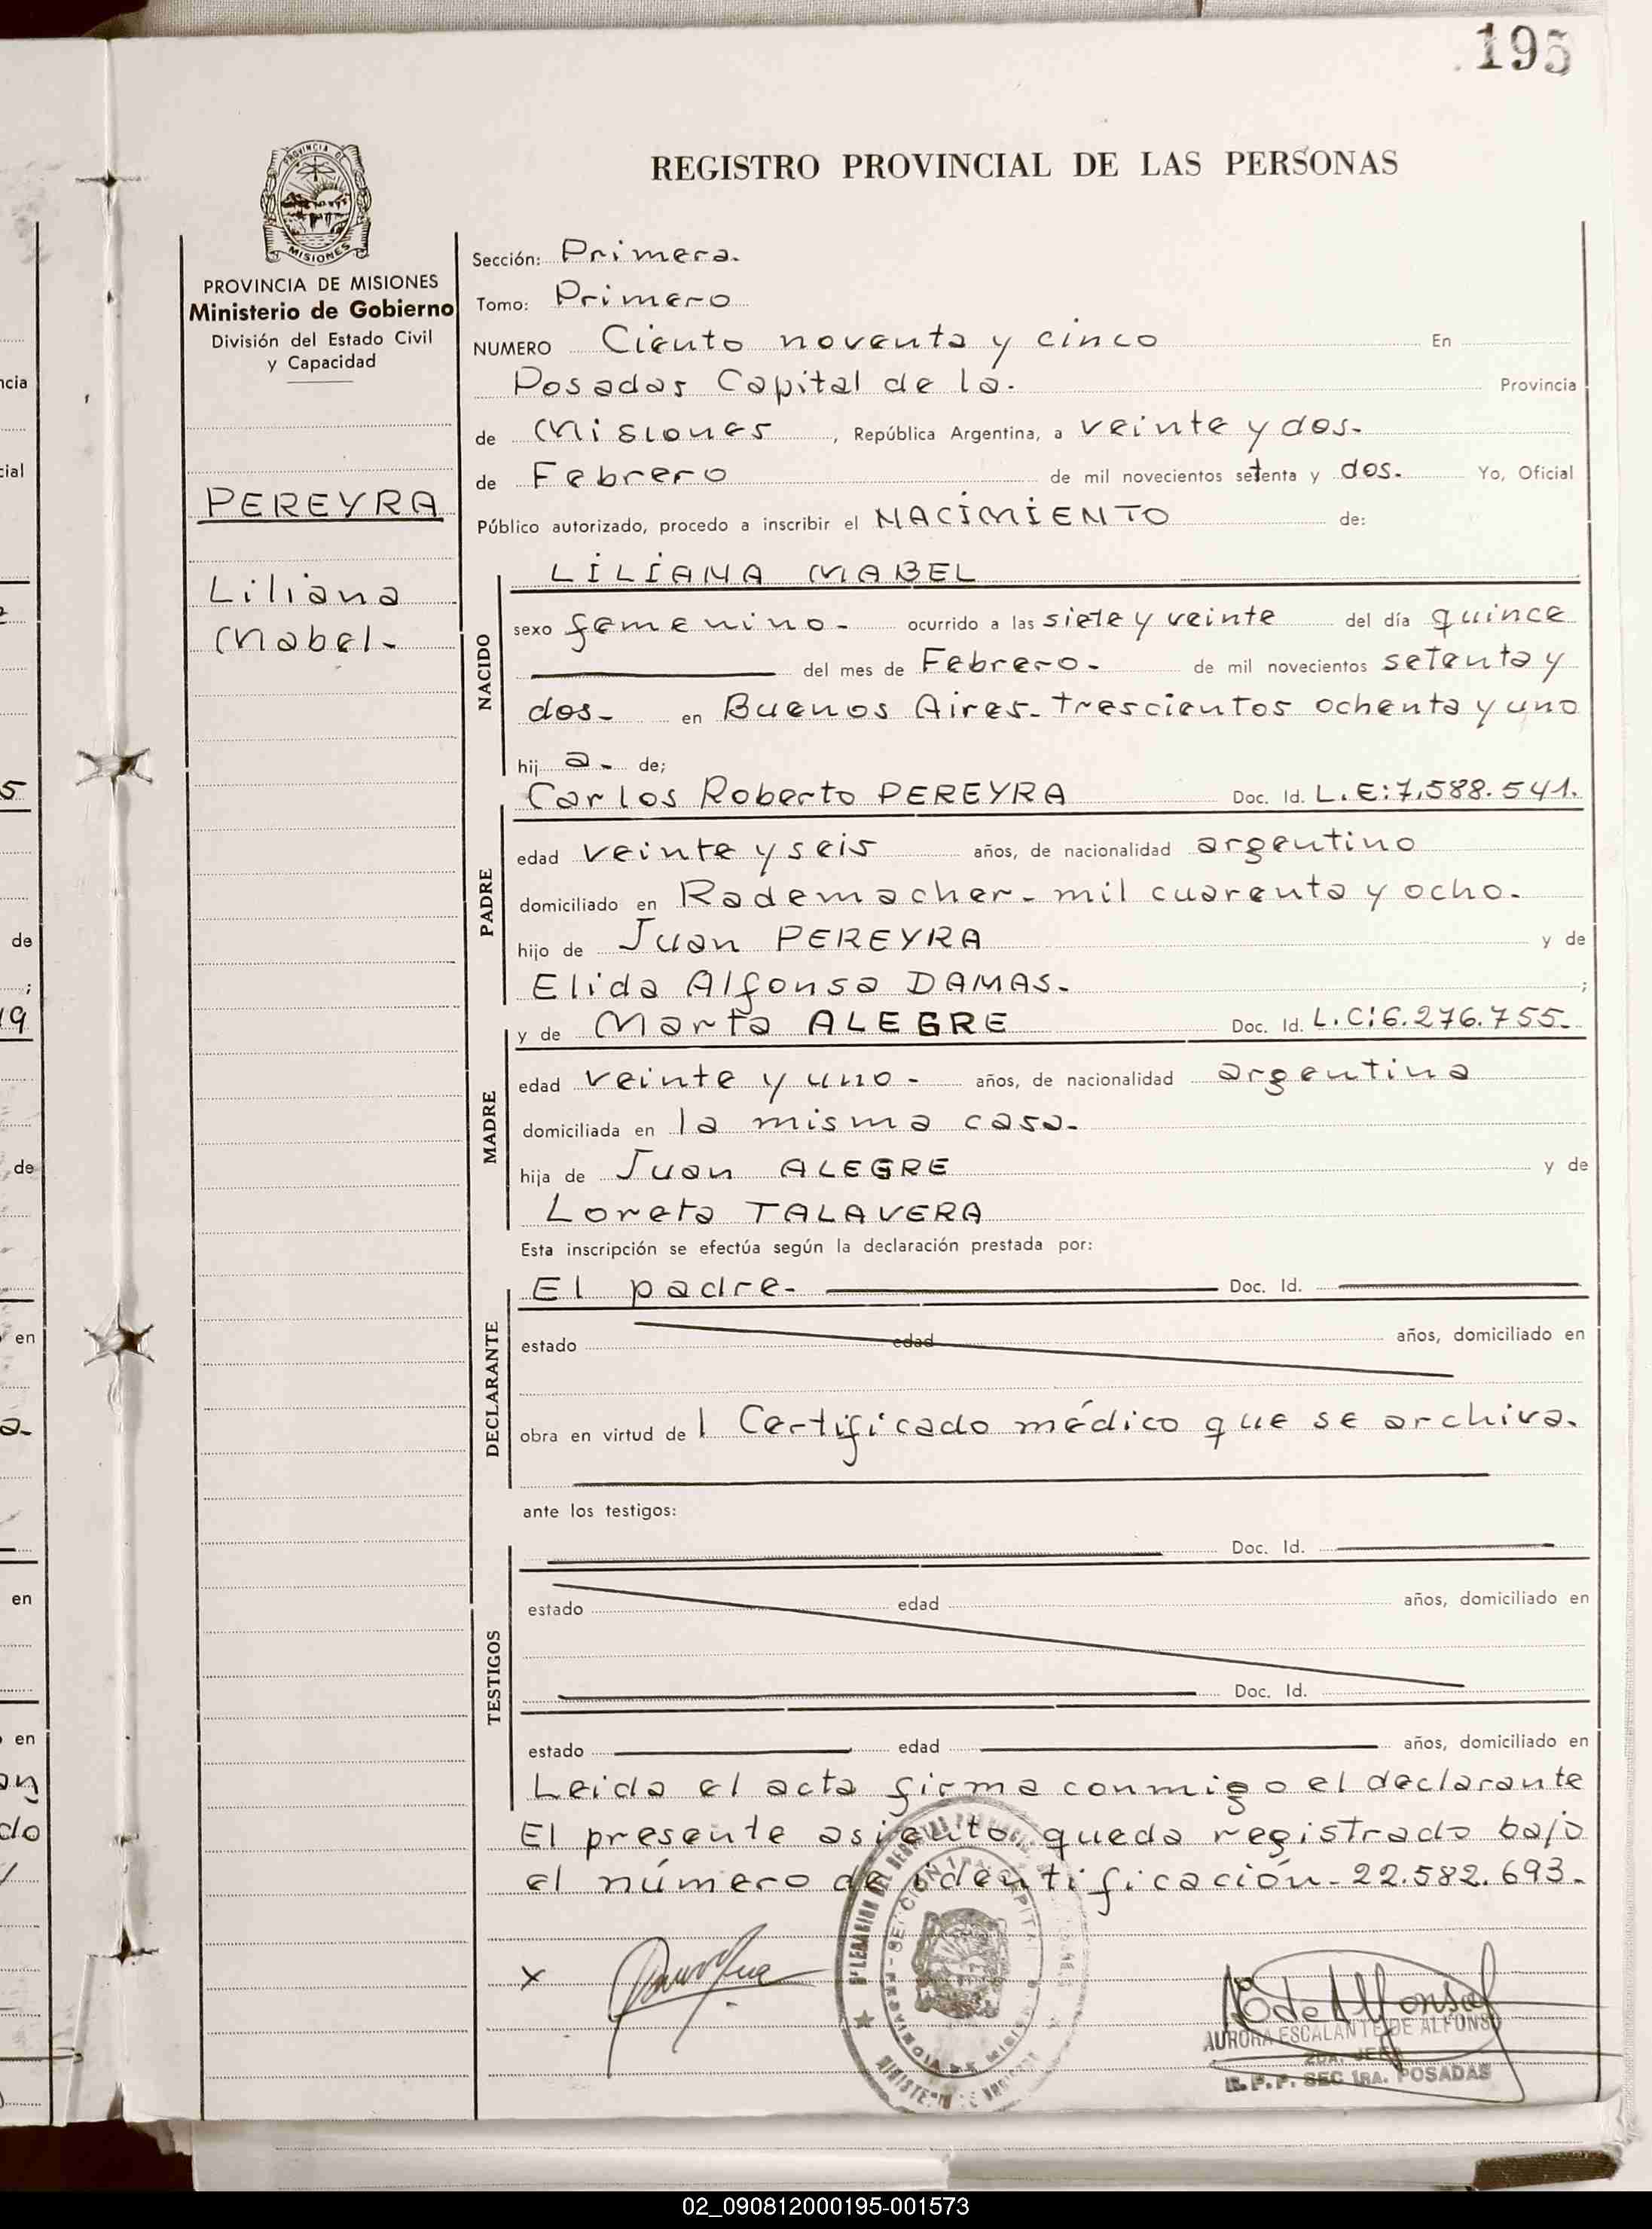 195
REGISTRO PROVINCIAL DE LAS PERSONAS
PROVINCIA DE
MISIONES
PROVINCIA DE MISIONES
Ministerio de Gobierno
División del Estado Civil
y Capacidad
PEREYRA
Liliana
Mabel-
Sección: Primera.
Tomo: Primero
NUMERO Ciento noventa y cinco En
Posadas Capital de la. Provincia
de Misiones, República Argentina, a veinte y dos-
de Febrero de mil novecientos setenta y dos. Yo, Oficial
Público autorizado, procedo a inscribir el NACIMIENTO de:
NACIDO
LILIANA MABEL
sexo femenino- ocurrido a las siete y veinte del día quince
del mes de Febrero- de mil novecientos setenta y
dos- en Buenos Aires- trescientos ochenta y uno
hij a- de;
PADRE
Carlos Roberto PEREYRA Doc. Id. L.E:7.588.541.
edad veinte y seis años, de nacionalidad argentino
domiciliado en Rademacher- mil cuarenta y ocho-
hijo de Juan PEREYRA y de
Elida Alfonsa DAMAS- ;
MADRE
y de Marta ALEGRE Doc. Id. L.C:6.276.755-
edad veinte y uno- años, de nacionalidad argentina
domiciliada en la misma casa-
hija de Juan ALEGRE y de
Loreta TALAVERA
Esta inscripción se efectúa según la declaración prestada por:
DECLARANTE
El padre- Doc. Id.
estado edad años, domiciliado en
obra en virtud de l Certificado médico que se archiva.
ante los testigos:
TESTIGOS
Doc. Id.
estado edad años, domiciliado en
Doc. Id.
estado edad años, domiciliado en
Leida el acta firma conmigo el declarante
El presente asiento queda registrado bajo
el número de identificación- 22.582.693-
x
AURORA ESCALANTE DE ALFONSO
2DA. JEFA
R.P.P. SEC 1RA. POSADAS
02_090812000195-001573